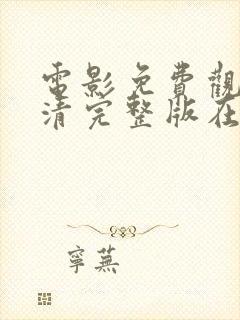 電影免費觀
清完整版在
寧蕪